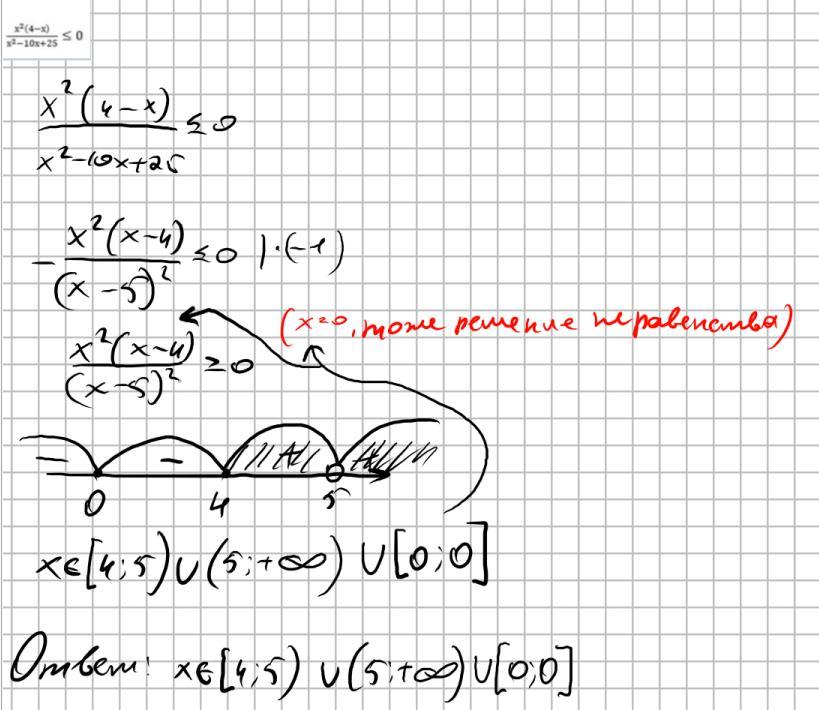 x²(4−x)/(x²−10x+25) ≤ 0
x²(4−x)/(x²−10x+25) ≤ 0
−x²(x−4)/(x−5)² ≤ 0 |·(−1)
(x=0, тоже решение неравенства)
x²(x−4)/(x−5)² ≥ 0
− − + +
0 4 5
x∈[4;5)∪(5;+∞) ∪[0;0]
Ответ: x∈[4;5) ∪(5;+∞)∪[0;0]